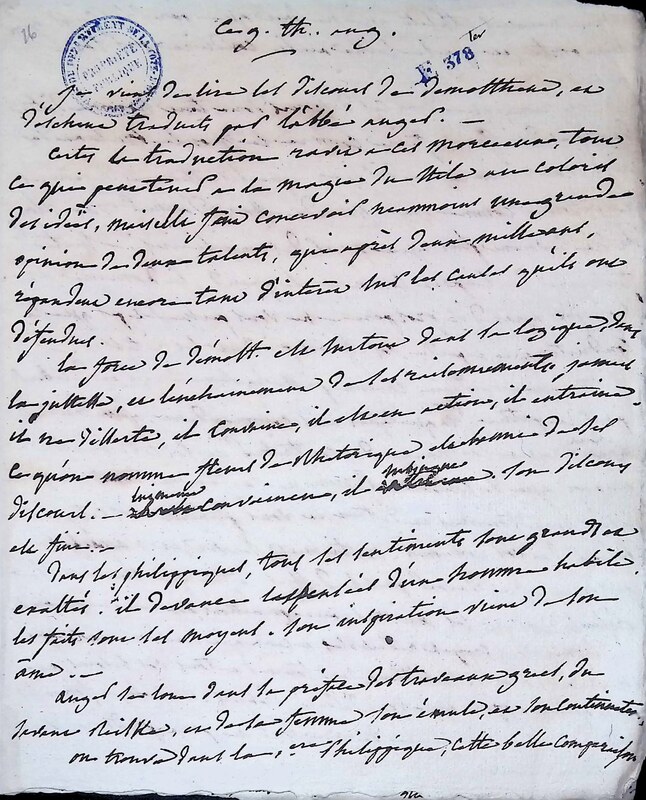 16
Ce 9. th. aug.
E 378 ter
PROPRIÉTÉ PUBLIQUE
je viens de lire les discours de démosthene, et
d'éschine traduits par l'abbé auger. —
Certes la traduction ravit a ces morceaux, tout
ce qui peut tenir a la magie du stile au coloris
des idées, mais elle fait concevoir neanmoins une grande
opinion de deux talents, qui après deux mille ans,
répandent encore tant d'intérêt sur les causes qu'ils ont
défendues.
la force de démost. est surtout dans la logique, dans
la justesse, et l'enchainement de ses raisonnements. jamais
il ne disserte, il convainc, il est en action, il entraine.
ce qu'on nomme fleurs de rhétorique, est banni de ses
discours. — lui meme convaincu, il subjugue. son discours
est fini. —
Dans les philippiques, tous les sentiments sont grands et
exaltés. il devance les pensées d'un homme habile.
les faits sont ses moyens. son inspiration vient de son
âme. —
auger se loue dans la préface des travaux grecs, du
savant Reiske, et de sa femme son émule, et son continuateur.
on trouve dans la 1ere Philippique, cette belle comparaison